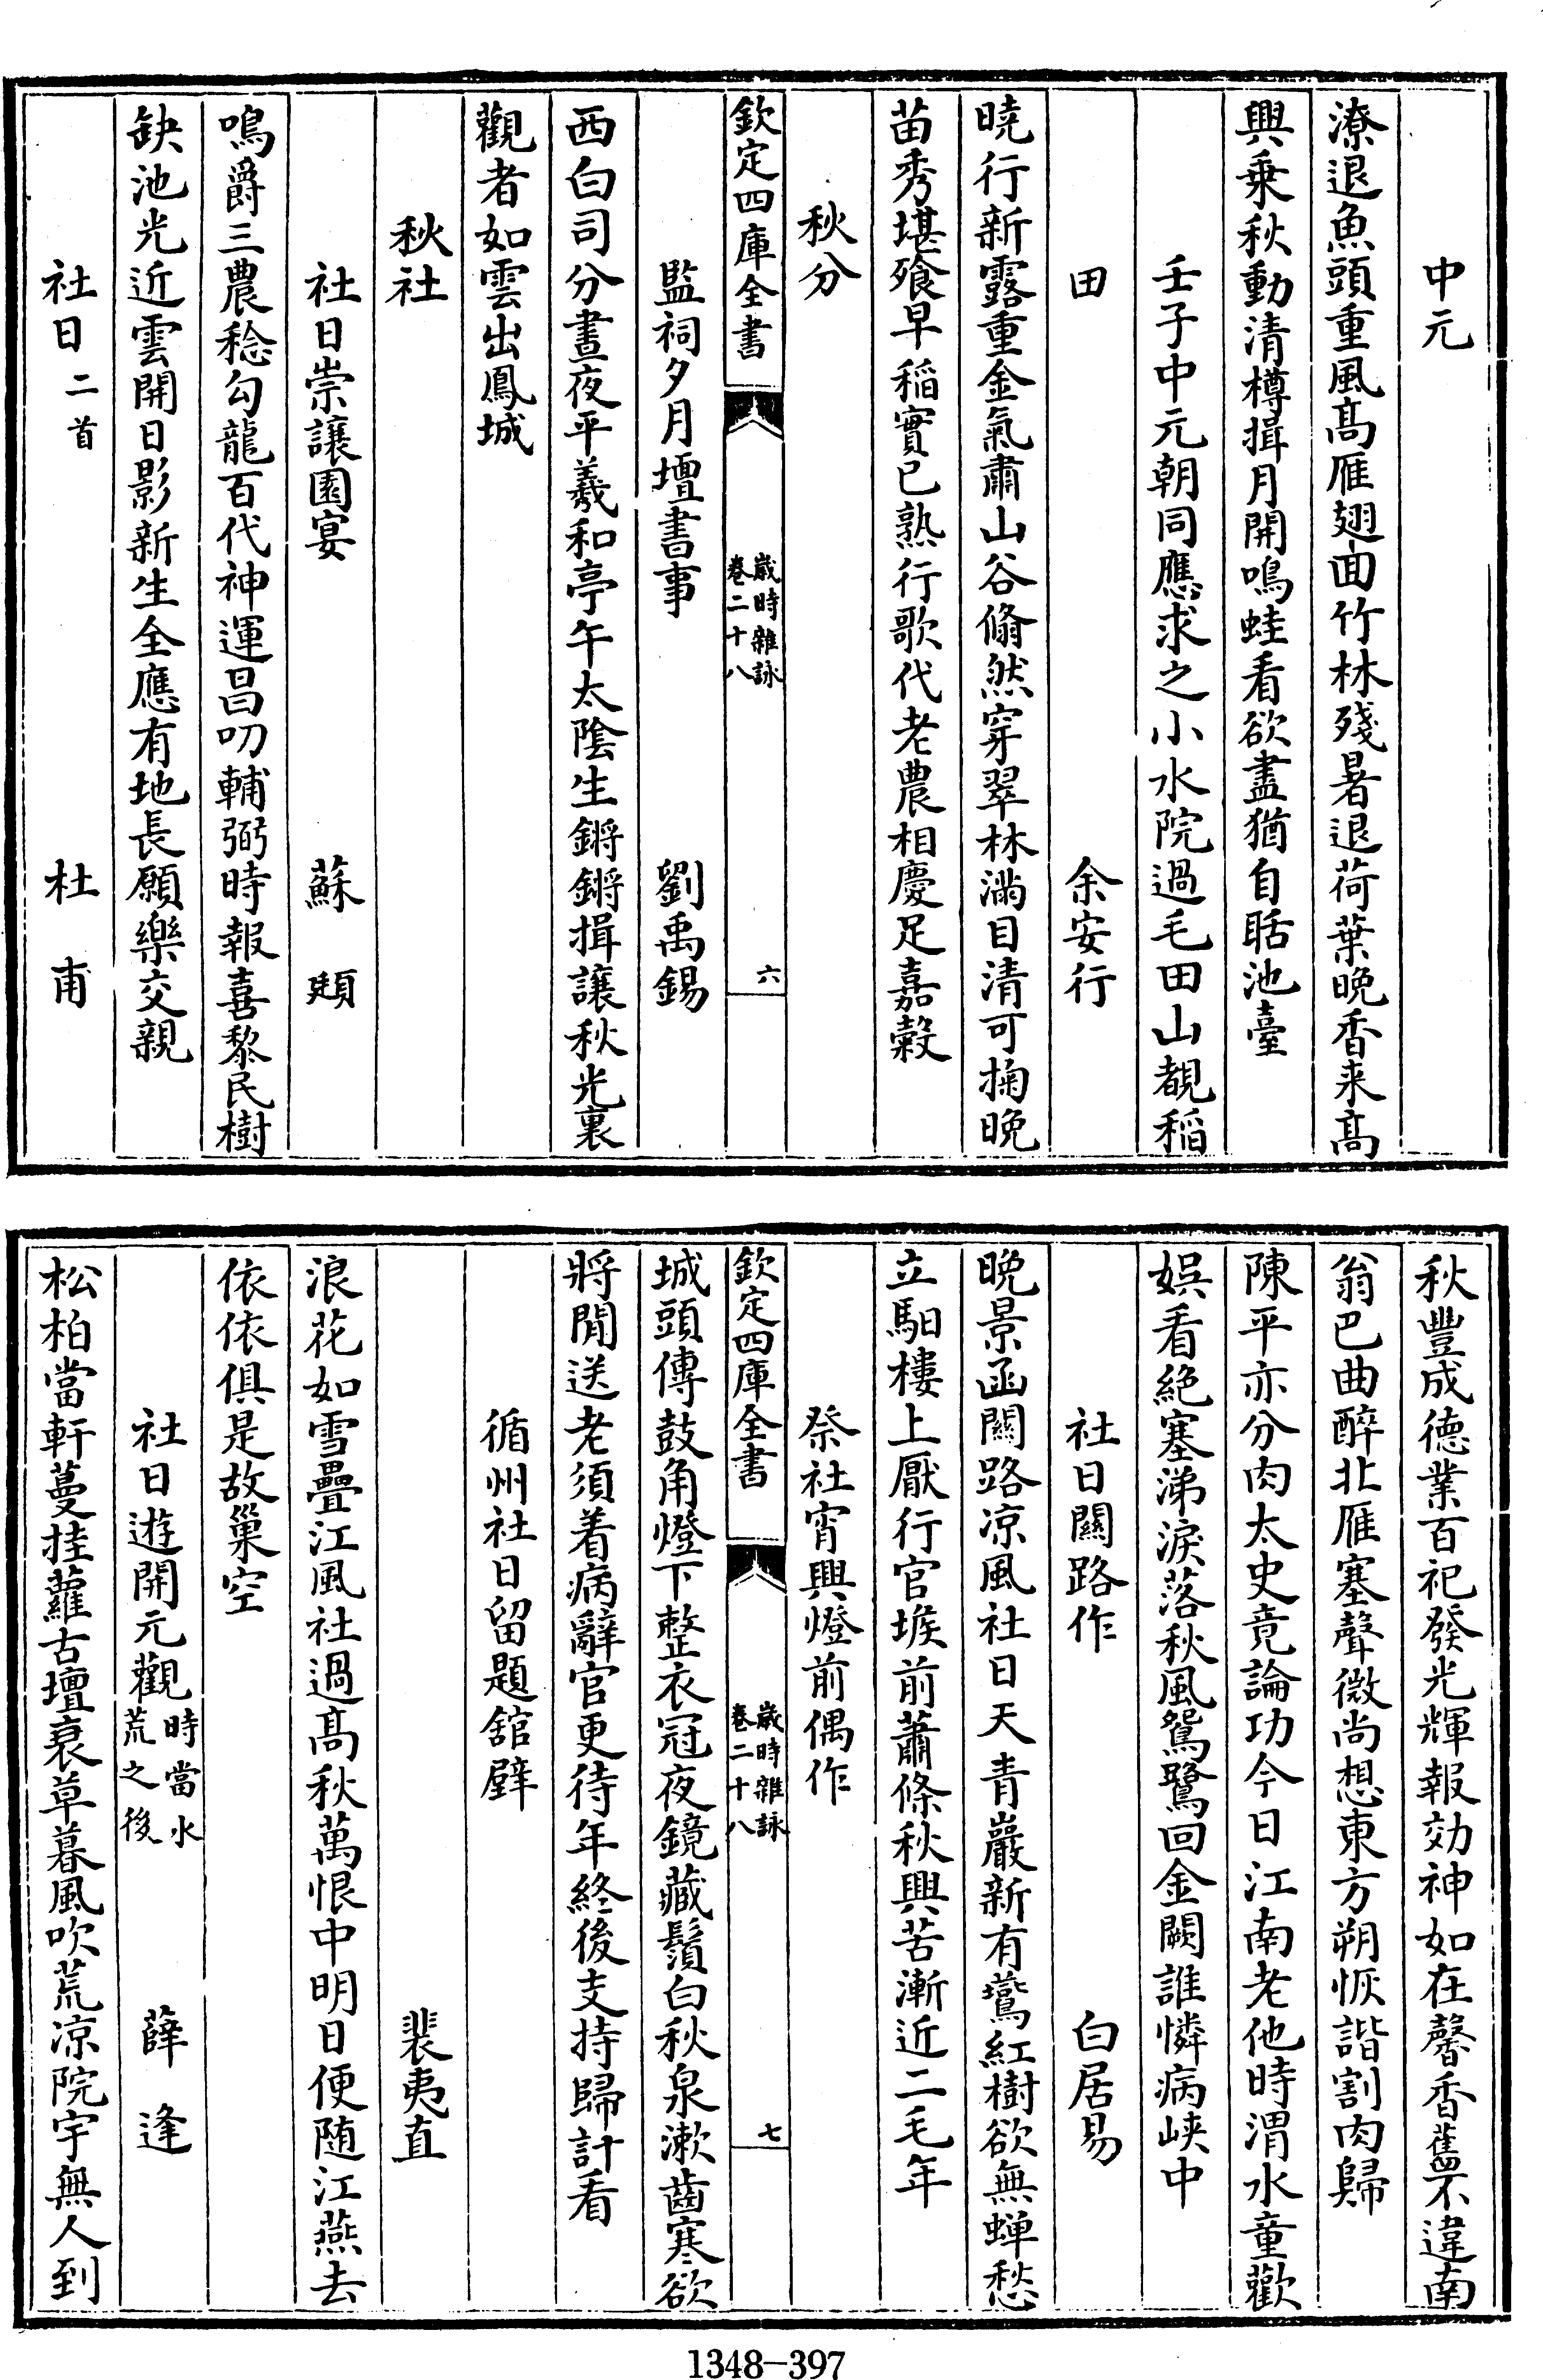 中元
潦退魚頭重風髙雁翅面竹林殘暑退荷葉晚香来髙
興乗秋動清樽揖月開鳴蛙看欲盡猶自聒池臺
壬子中元朝同應求之小水院過毛田山覩稻
田 余安行
曉行新露重金氣肅山谷翛然穿翠林滿目清可掬晚
苗秀堪飱早稻實已熟行歌代老農相慶足嘉穀
秋分
欽定四庫全書 歲時雜詠 卷二十八 六
監祠夕月壇書事 劉禹錫
西白司分晝夜平羲和亭午太陰生鏘鏘揖讓秋光裏
觀者如雲出鳳城
秋社
社日崇讓園宴 蘇頲
鳴爵三農稔勾龍百代神運昌叨輔弼時報喜黎民樹
缺池光近雲開日影新生全應有地長願樂交親
社日二首 杜甫
秋豐成德業百祀發光輝報効神如在馨香舊不違南
翁巴曲醉北雁塞聲微尚想東方朔恢諧割肉歸
陳平亦分肉太史竟論功今日江南老他時渭水童歡
娯看絶塞涕淚落秋風鴛鷺回金闕誰憐病峽中
社日關路作 白居易
晚景函關路凉風社日天青巖新有鷰紅樹欲無蝉愁
立馹樓上厭行官堠前蕭條秋興苦漸近二毛年
祭社宵興燈前偶作
欽定四庫全書 歲時雜詠 卷二十八 七
城頭傳鼓角燈下整衣冠夜鏡藏鬚白秋泉漱齒寒欲
將閒送老須着病辭官更待年終後支持歸計看
循州社日留題舘壁
裴夷直
浪花如雪疊江風社過髙秋萬恨中明日便随江燕去
依依俱是故巢空
社日遊開元觀 時當水荒之後 薛逢
松柏當軒蔓挂蘿古壇衰草暮風吹荒凉院宇無人到
1348-397